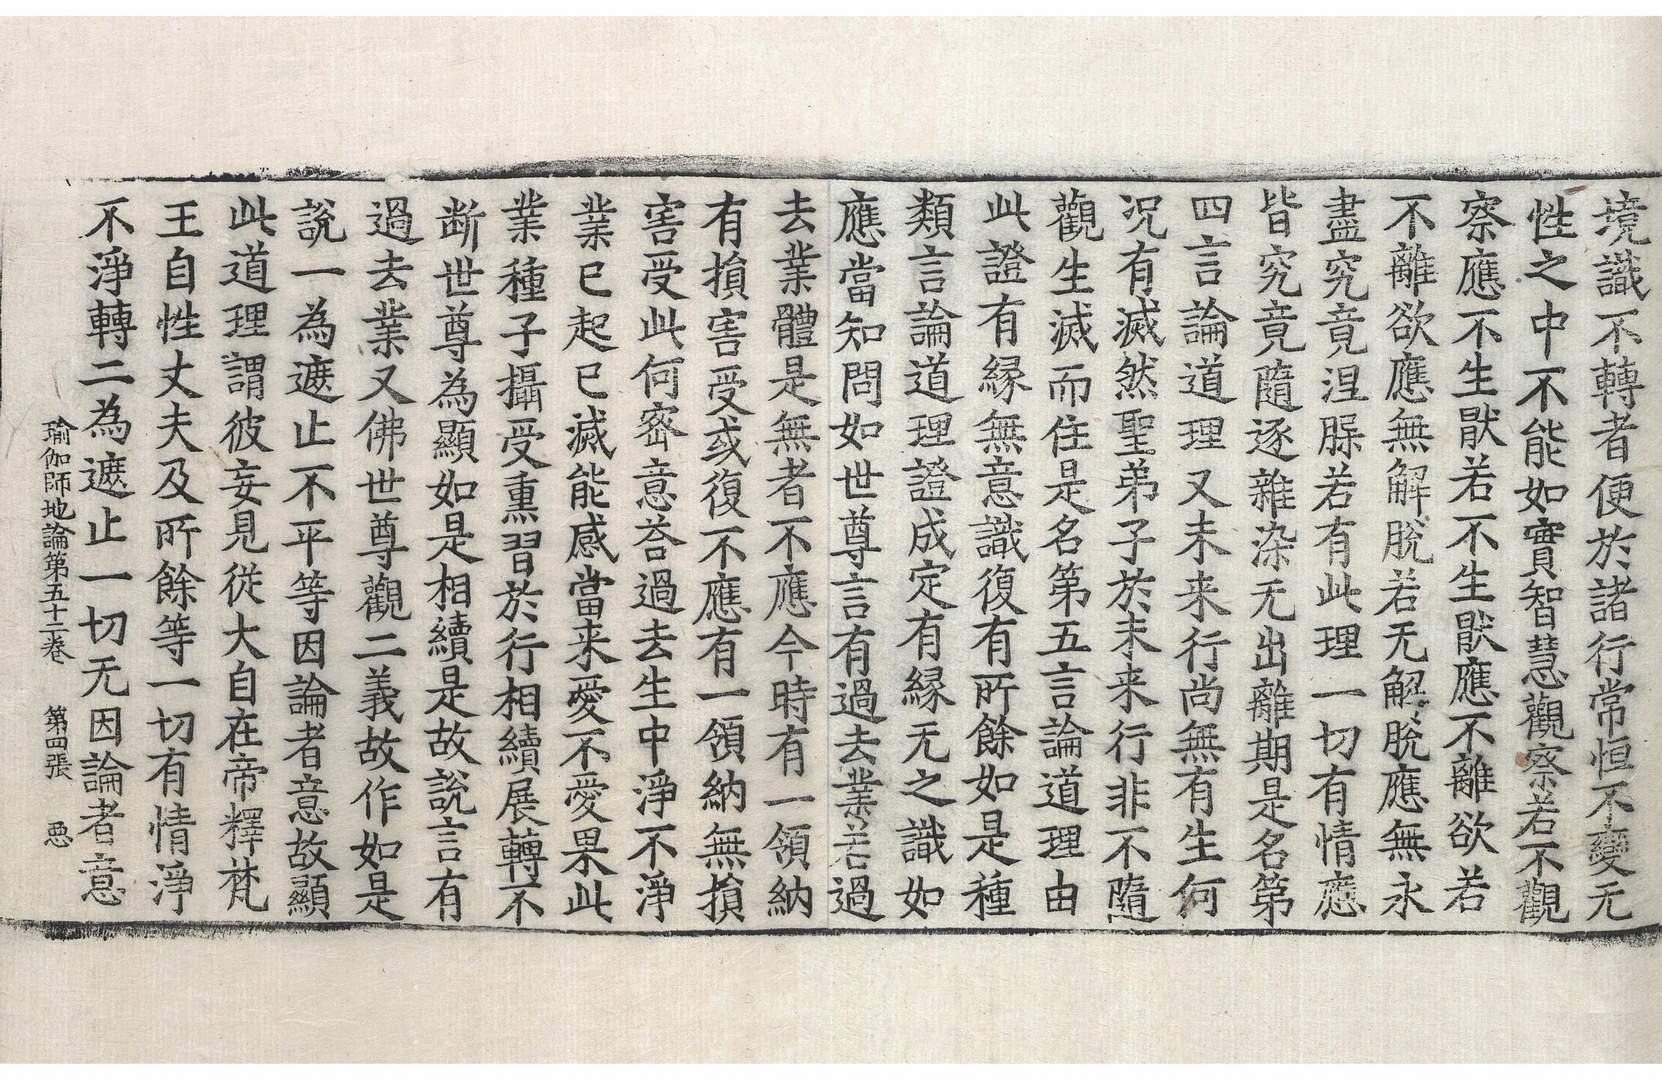 境識不轉者便於諸行常恒不變无
性之中不能如實智慧觀察若不觀
察應不生猒若不生猒應不離欲若
不離欲應無解脫若无解脫應無永
盡究竟涅槃若有此理一切有情應
皆究竟隨逐雜染无出離期是名第
四言論道理又未来行尚無有生何
况有滅然聖弟子於未来行非不隨
觀生滅而住是名第五言論道理由
此證有縁無意識復有所餘如是種
類言論道理證成定有縁无之識如
應當知問如世尊言有過去業若過
去業體是無者不應今時有一領納
有損害受或復不應有一領納無損
害受此何密意荅過去生中淨不淨
業已起已滅能感當来愛不愛果此
業種子攝受熏習於行相續展轉不
断世尊為顯如是相續是故說言有
過去業又佛世尊觀二義故作如是
說一為遮止不平等因論者意故顯
此道理謂彼妄見從大自在帝釋梵
王自性丈夫及所餘等一切有情淨
不淨轉二為遮止一切无因論者意
瑜伽師地論第五十二卷　第四張　惡